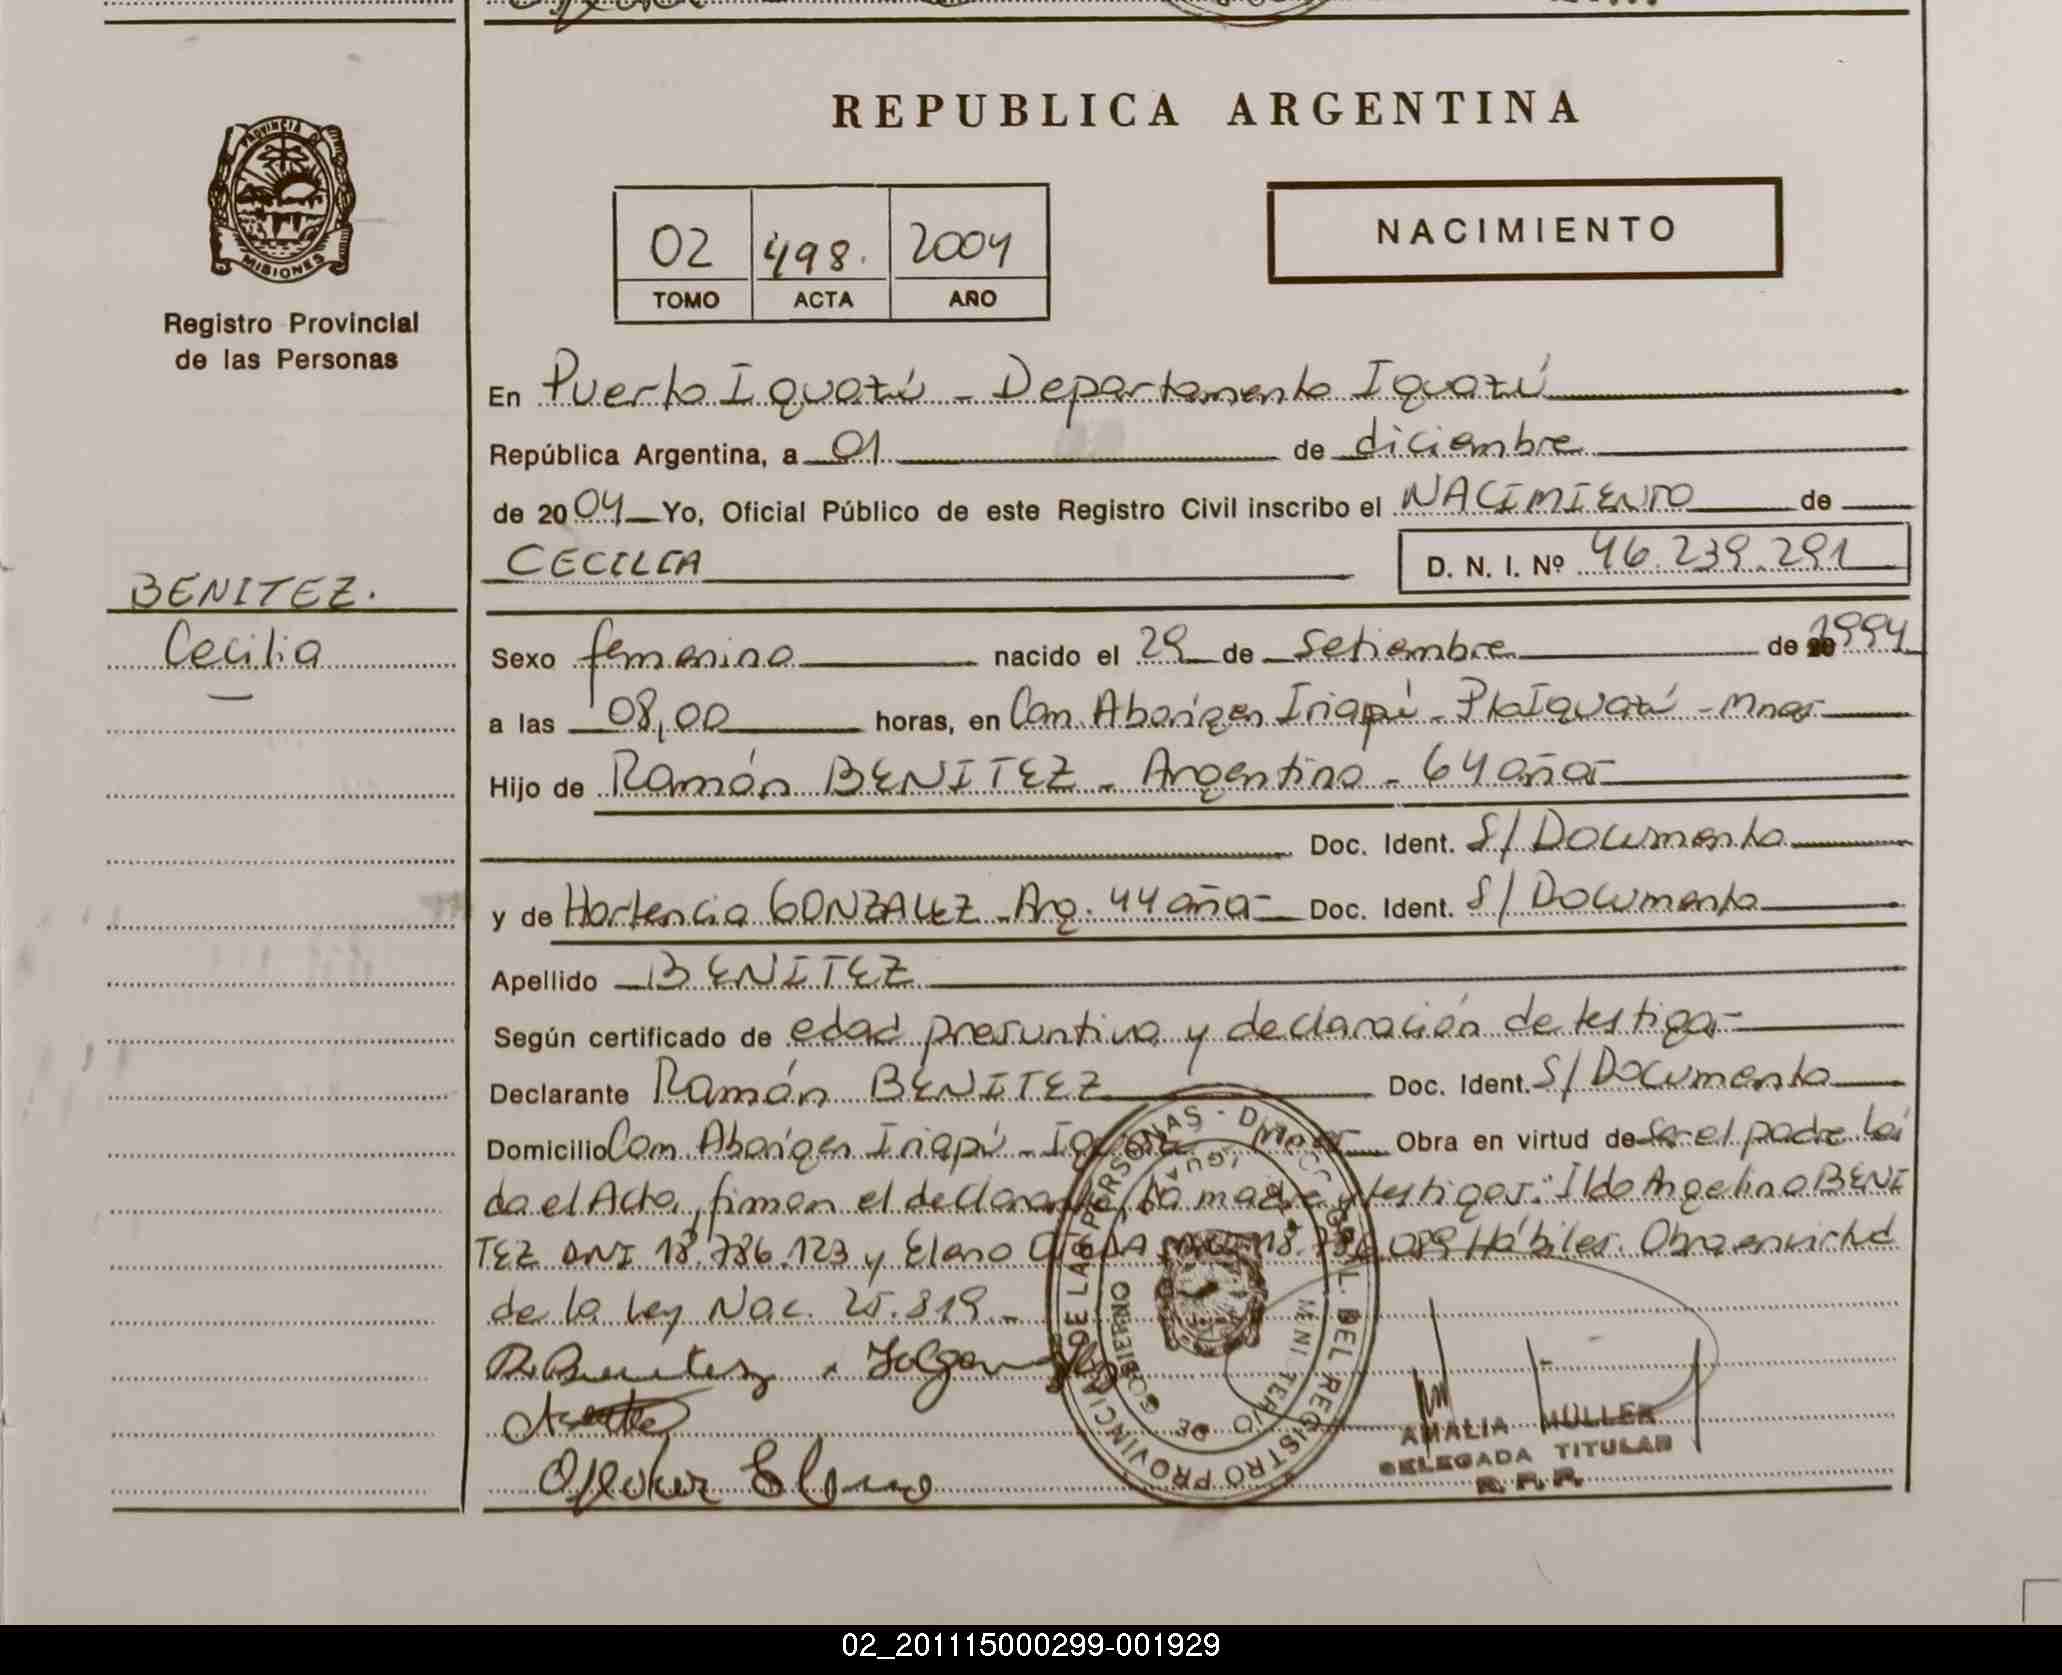 REPUBLICA ARGENTINA
PROVINCIA DE
MISIONES
Registro Provincial
de las Personas
02 498. 2004
TOMO ACTA AÑO
NACIMIENTO
En Puerto Iguazú - Departamento Iguazú
República Argentina, a 01 de diciembre
de 2004 Yo, Oficial Público de este Registro Civil inscribo el NACIMIENTO de
CECILIA D. N. I. Nº 46.239.291
BENITEZ.
Cecilia
Sexo femenino nacido el 29 de Setiembre de 1994
a las 08,00 horas, en Com. Aborigen Iriapú - Pto Iguazú - Mnes
Hijo de Ramón BENITEZ - Argentino - 64 años
Doc. Ident. S/ Documento
y de Hortencia GONZALEZ - Arg. 44 años Doc. Ident. S/ Documento
Apellido BENITEZ
Según certificado de edad presuntiva y declaración de testigos
Declarante Ramón BENITEZ Doc. Ident. S/ Documento
Domicilio Com Aborigen Iriapú - Iguazú Mnes Obra en virtud de ser el padre Leí
da el Acta, firman el declarante, la madre y testigos: Ildo Angelino BENI
TEZ DNI 18.786.123 y Elano 18.786.089 Hábiles. Obra en virtud
de la Ley Nac. 25.819.-
R Benitez
Elano
REGISTRO PROVINCIAL DE LAS PERSONAS
MINISTERIO DE GOBIERNO
AMALIA MÜLLER
DELEGADA TITULAR
R. P. P.
02_201115000299-001929